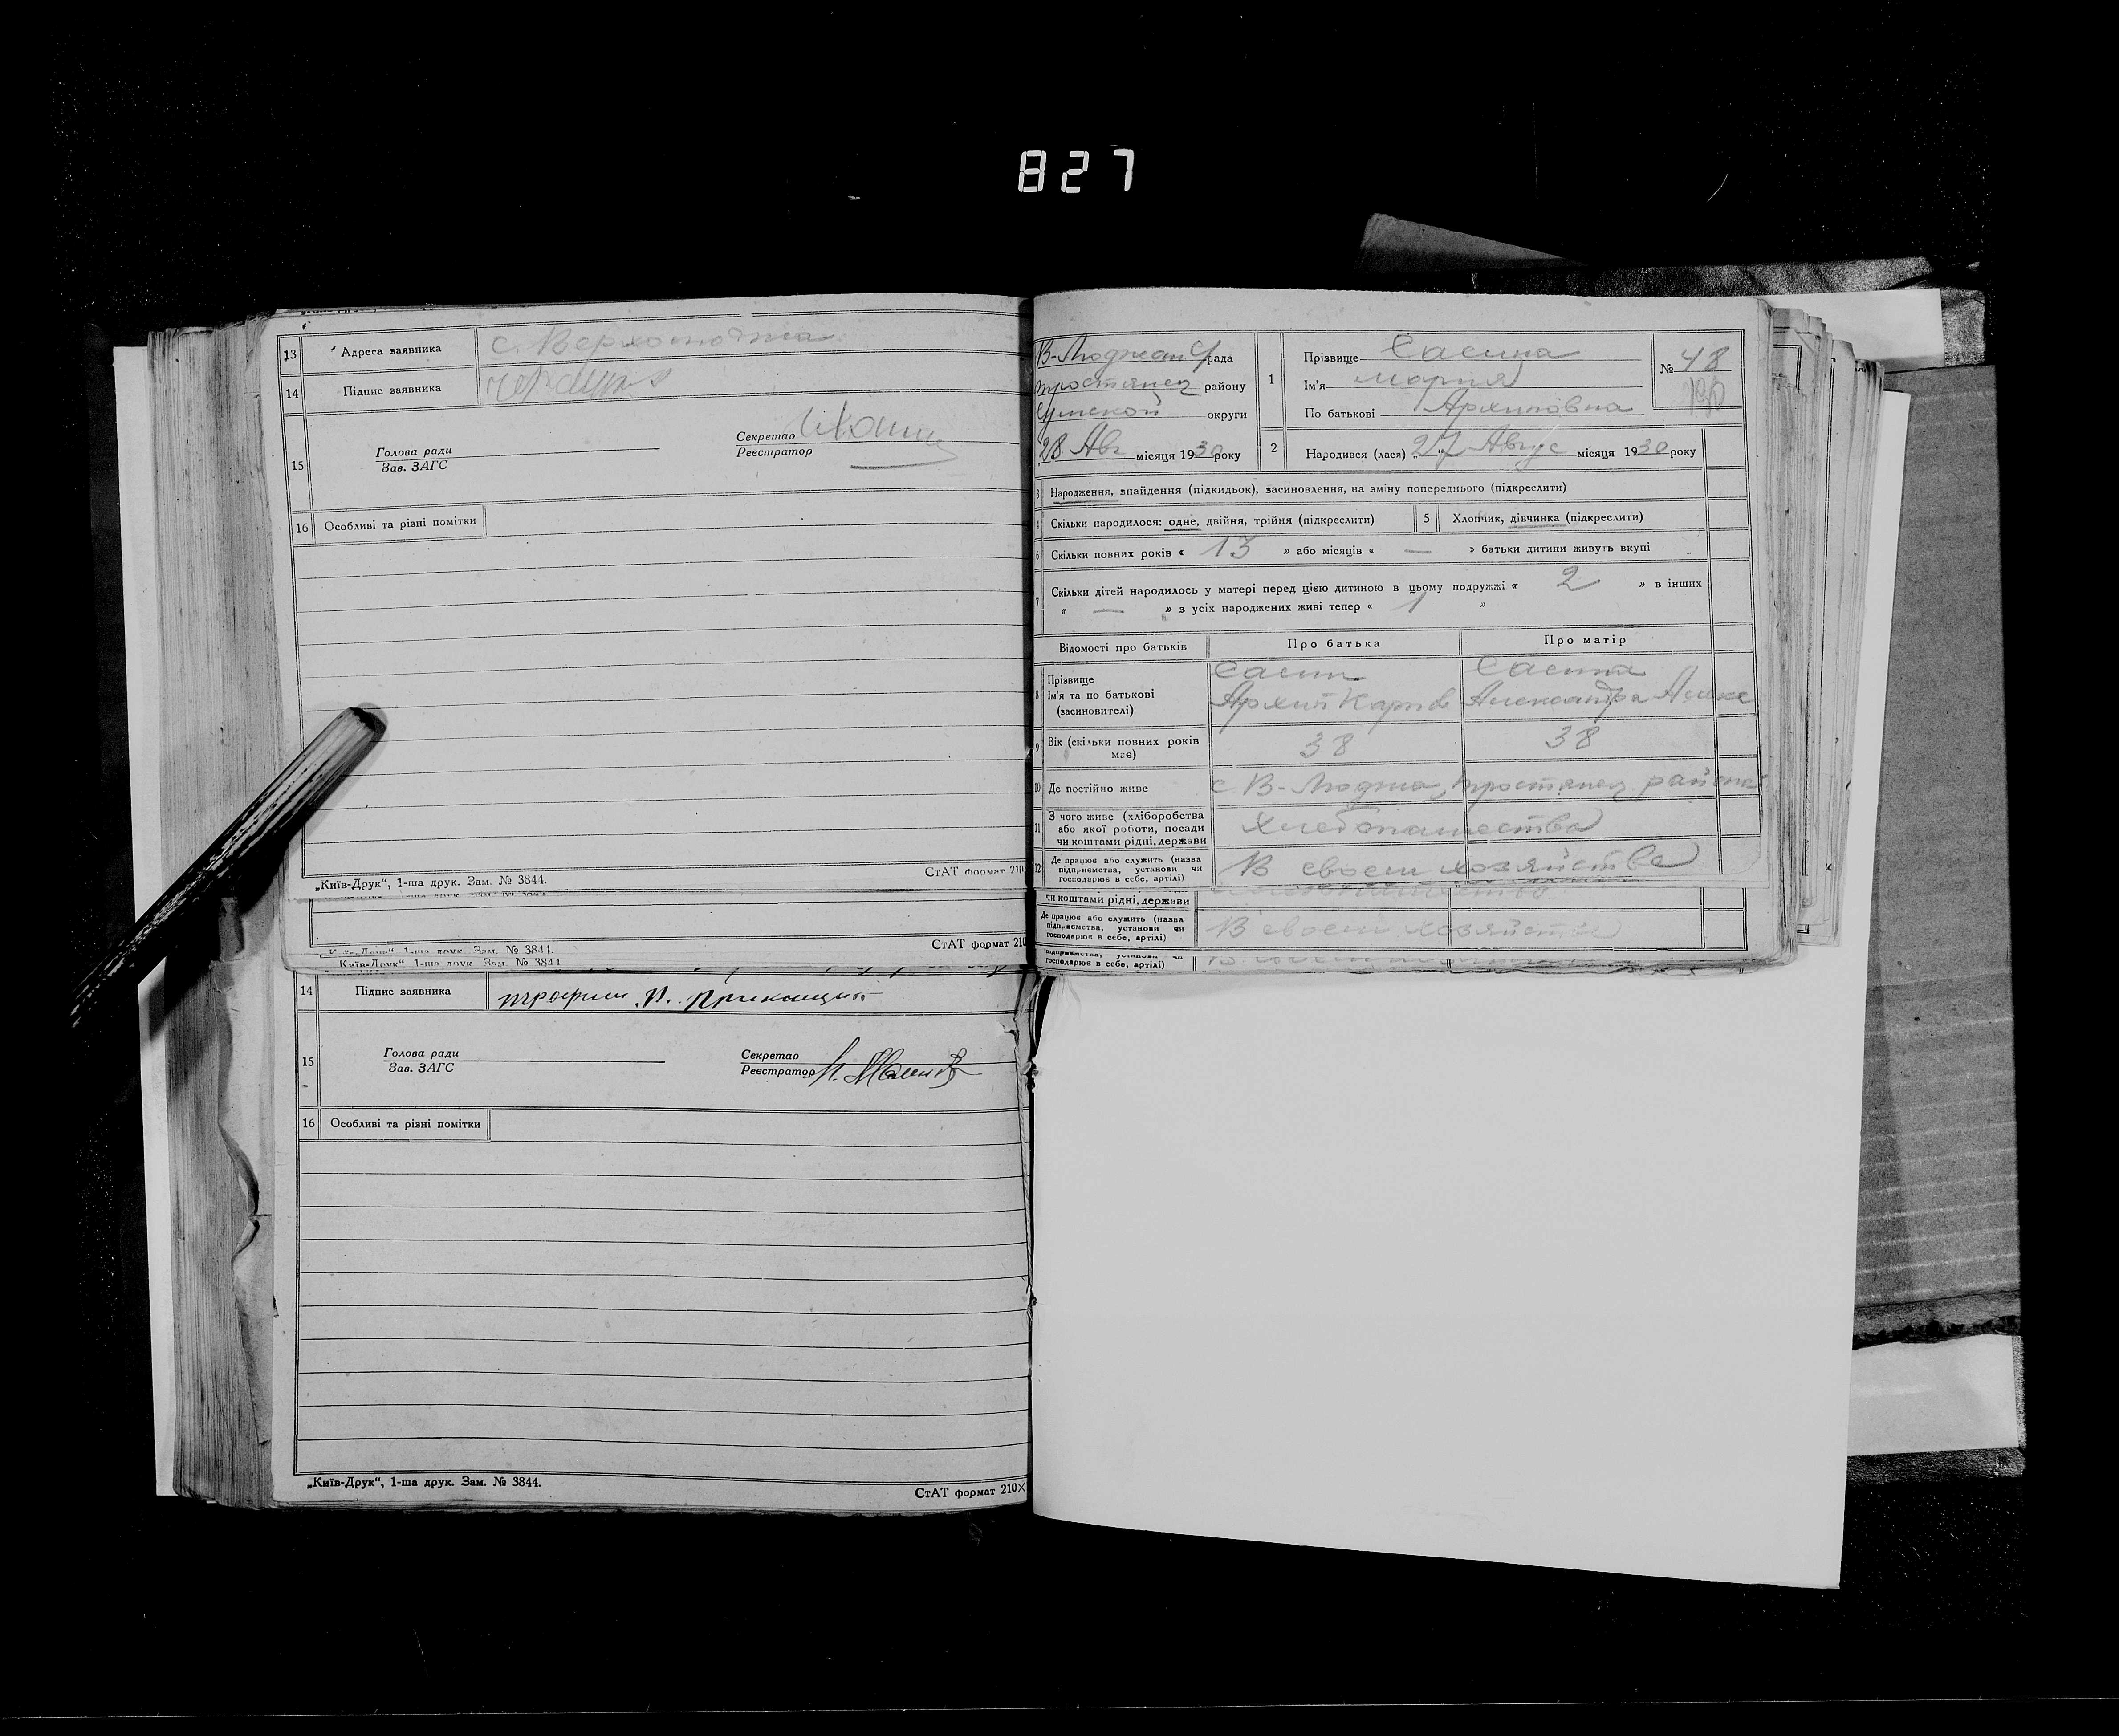 827
13 Адреса заявника
14 Підпис заявника
15 Голова ради
Зав. ЗАГС
Секретар
Реєстратор
16 Особливі та різні помітки
„Київ-Друк“, 1-ша друк. Зам. № 3844.
СтАТ формат 210
СтАТ формат 210
„Київ-Друк“, 1-ша друк. Зам. № 3844.
14 Підпис заявника
15 Голова ради
Зав. ЗАГС
Секретар
Реєстратор
16 Особливі та різні помітки
„Київ-Друк“, 1-ша друк. Зам. № 3844.
СтАТ формат 210×
рада
тростянец району
Сумской округи
28 Авг місяця 1930 року
1 Прізвище Сасина
Ім'я Мария
По батькові Архиповна
№ 48
2 Народився (лася) „27“ Авгус місяця 1930 року
3 Народження, знайдення (підкидьок), засиновлення, на зміну попереднього (підкреслити)
4 Скільки народилося: одне, двійня, трійня (підкреслити)
5 Хлопчик, дівчинка (підкреслити)
6 Скільки повних років « 13 » або місяців « — » батьки дитини живуть вкупі
7 Скільки дітей народилось у матері перед цією дитиною в цьому подружжі « 2 » в інших
« — » з усіх народжених живі тепер « 1 »
Відомості про батьків Про батька Про матір
8 Прізвище
Ім'я та по батькові
(засиновителі)
Сасин
Архип Карпов
Сасина
Александра Алекс
9 Вік (скільки повних років
має)
38 38
10 Де постійно живе с В-Люджа, тростянец района
11 З чого живе (хліборобства
або якої роботи, посади
чи коштами рідні, держави
хлебопашество
12 Де працює або служить (назва
підприємства, установи чи
господарює в себе, артілі)
В своем хозяйстве
чи коштами рідні, держави
Де працює або служить (назва
підприємства, установи чи
господарює в себе, артілі)
В своем хозяйстве
господарює в себе, артілі)